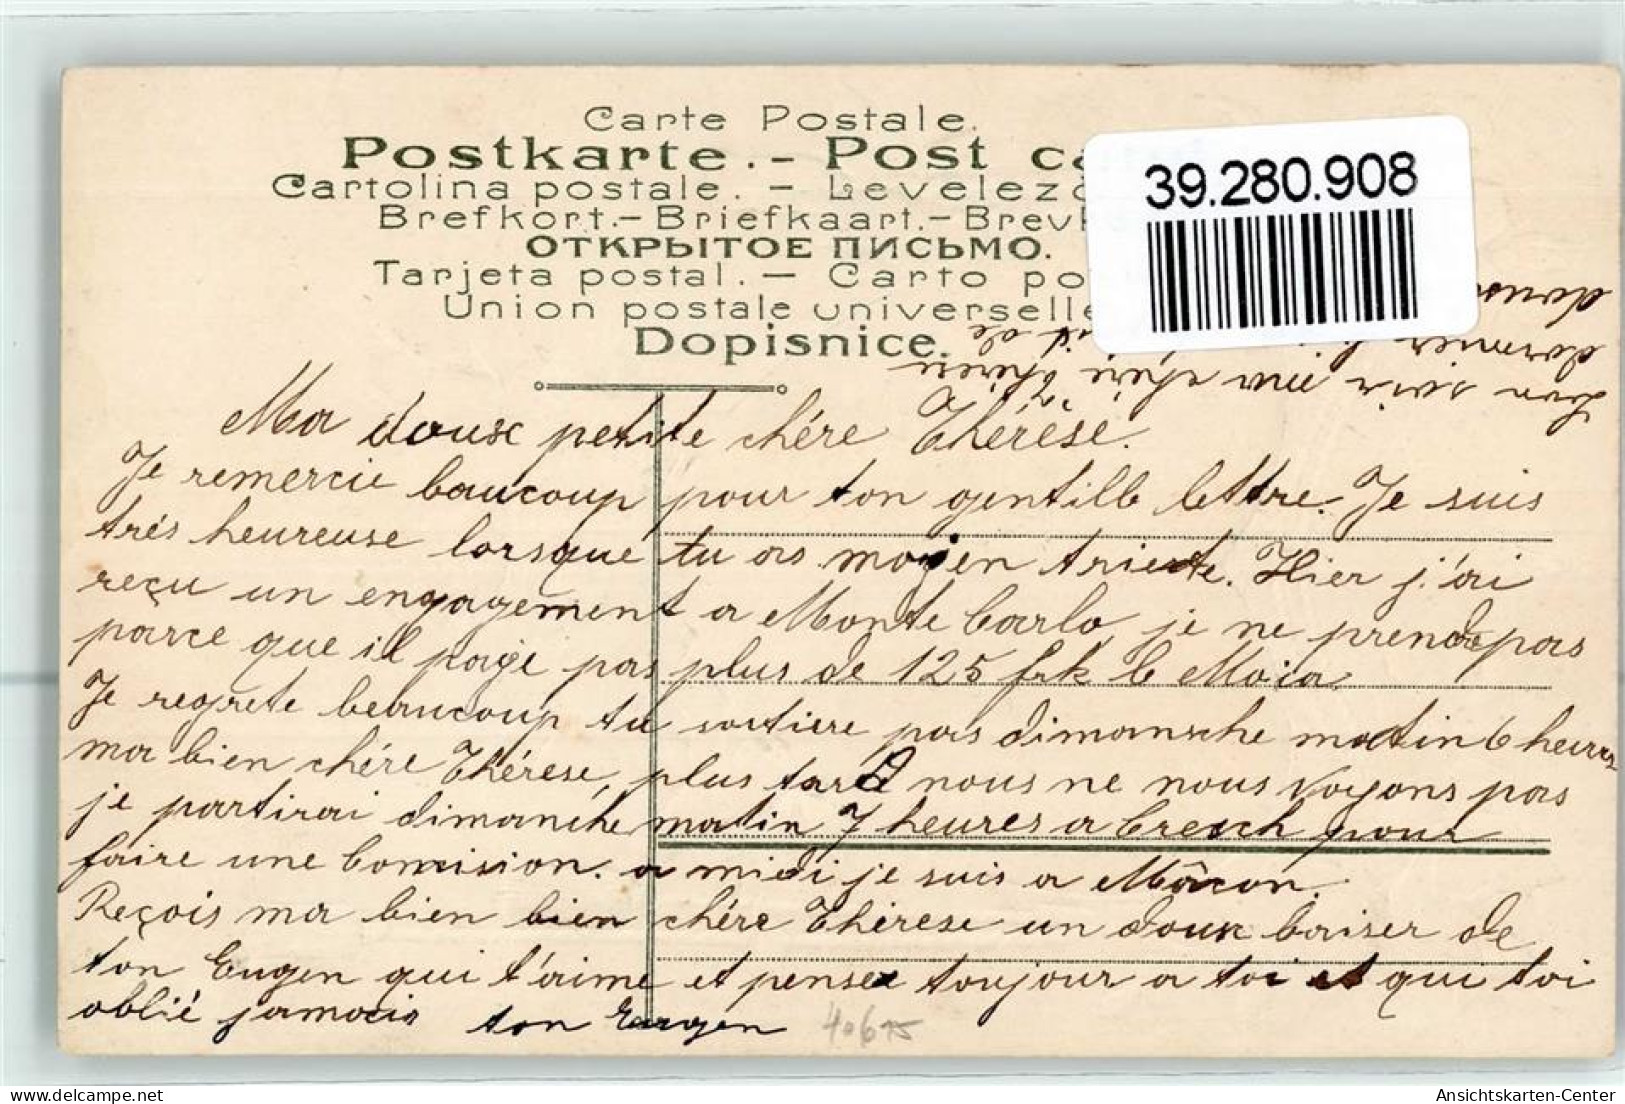 Carte Postale.
Postkarte. - Post
Cartolina postale. - Levelez
Brefkort. - Briefkaart. - Brev
ОТКРЫТОЕ ПИСЬМО.
Tarjeta postal. - Carto po
Union postale universelle
Dopisnice.
39.280.908
bon soir ma chére thérese
dormier
doux
Ma doux petite chére Thérése.
Je remercie baucoup pour ton gentille lettre. Je suis
trés heureuse lorsque tu as moyen trieste. Hier j'ai
reçu un engagement a Monte Carlo, je ne prende pas
parce que il paije pas plus de 125 frk le Mois.
Je regrete beaucoup tu sortiere pas dimansche matin 6 heures
ma bien chére Thérese, plus tard nous ne nous voyons pas
je partirai dimanche matin 7 heures a Creuch pour
faire une Comision. a midi je suis a Mâcon.
Reçois ma bien bien chére Thérese un doux baiser de
ton Eugen qui t'aime et pense toujour a toi et qui toi
oblié jamais ton Eugen
40675
Ansichtskarten-Center